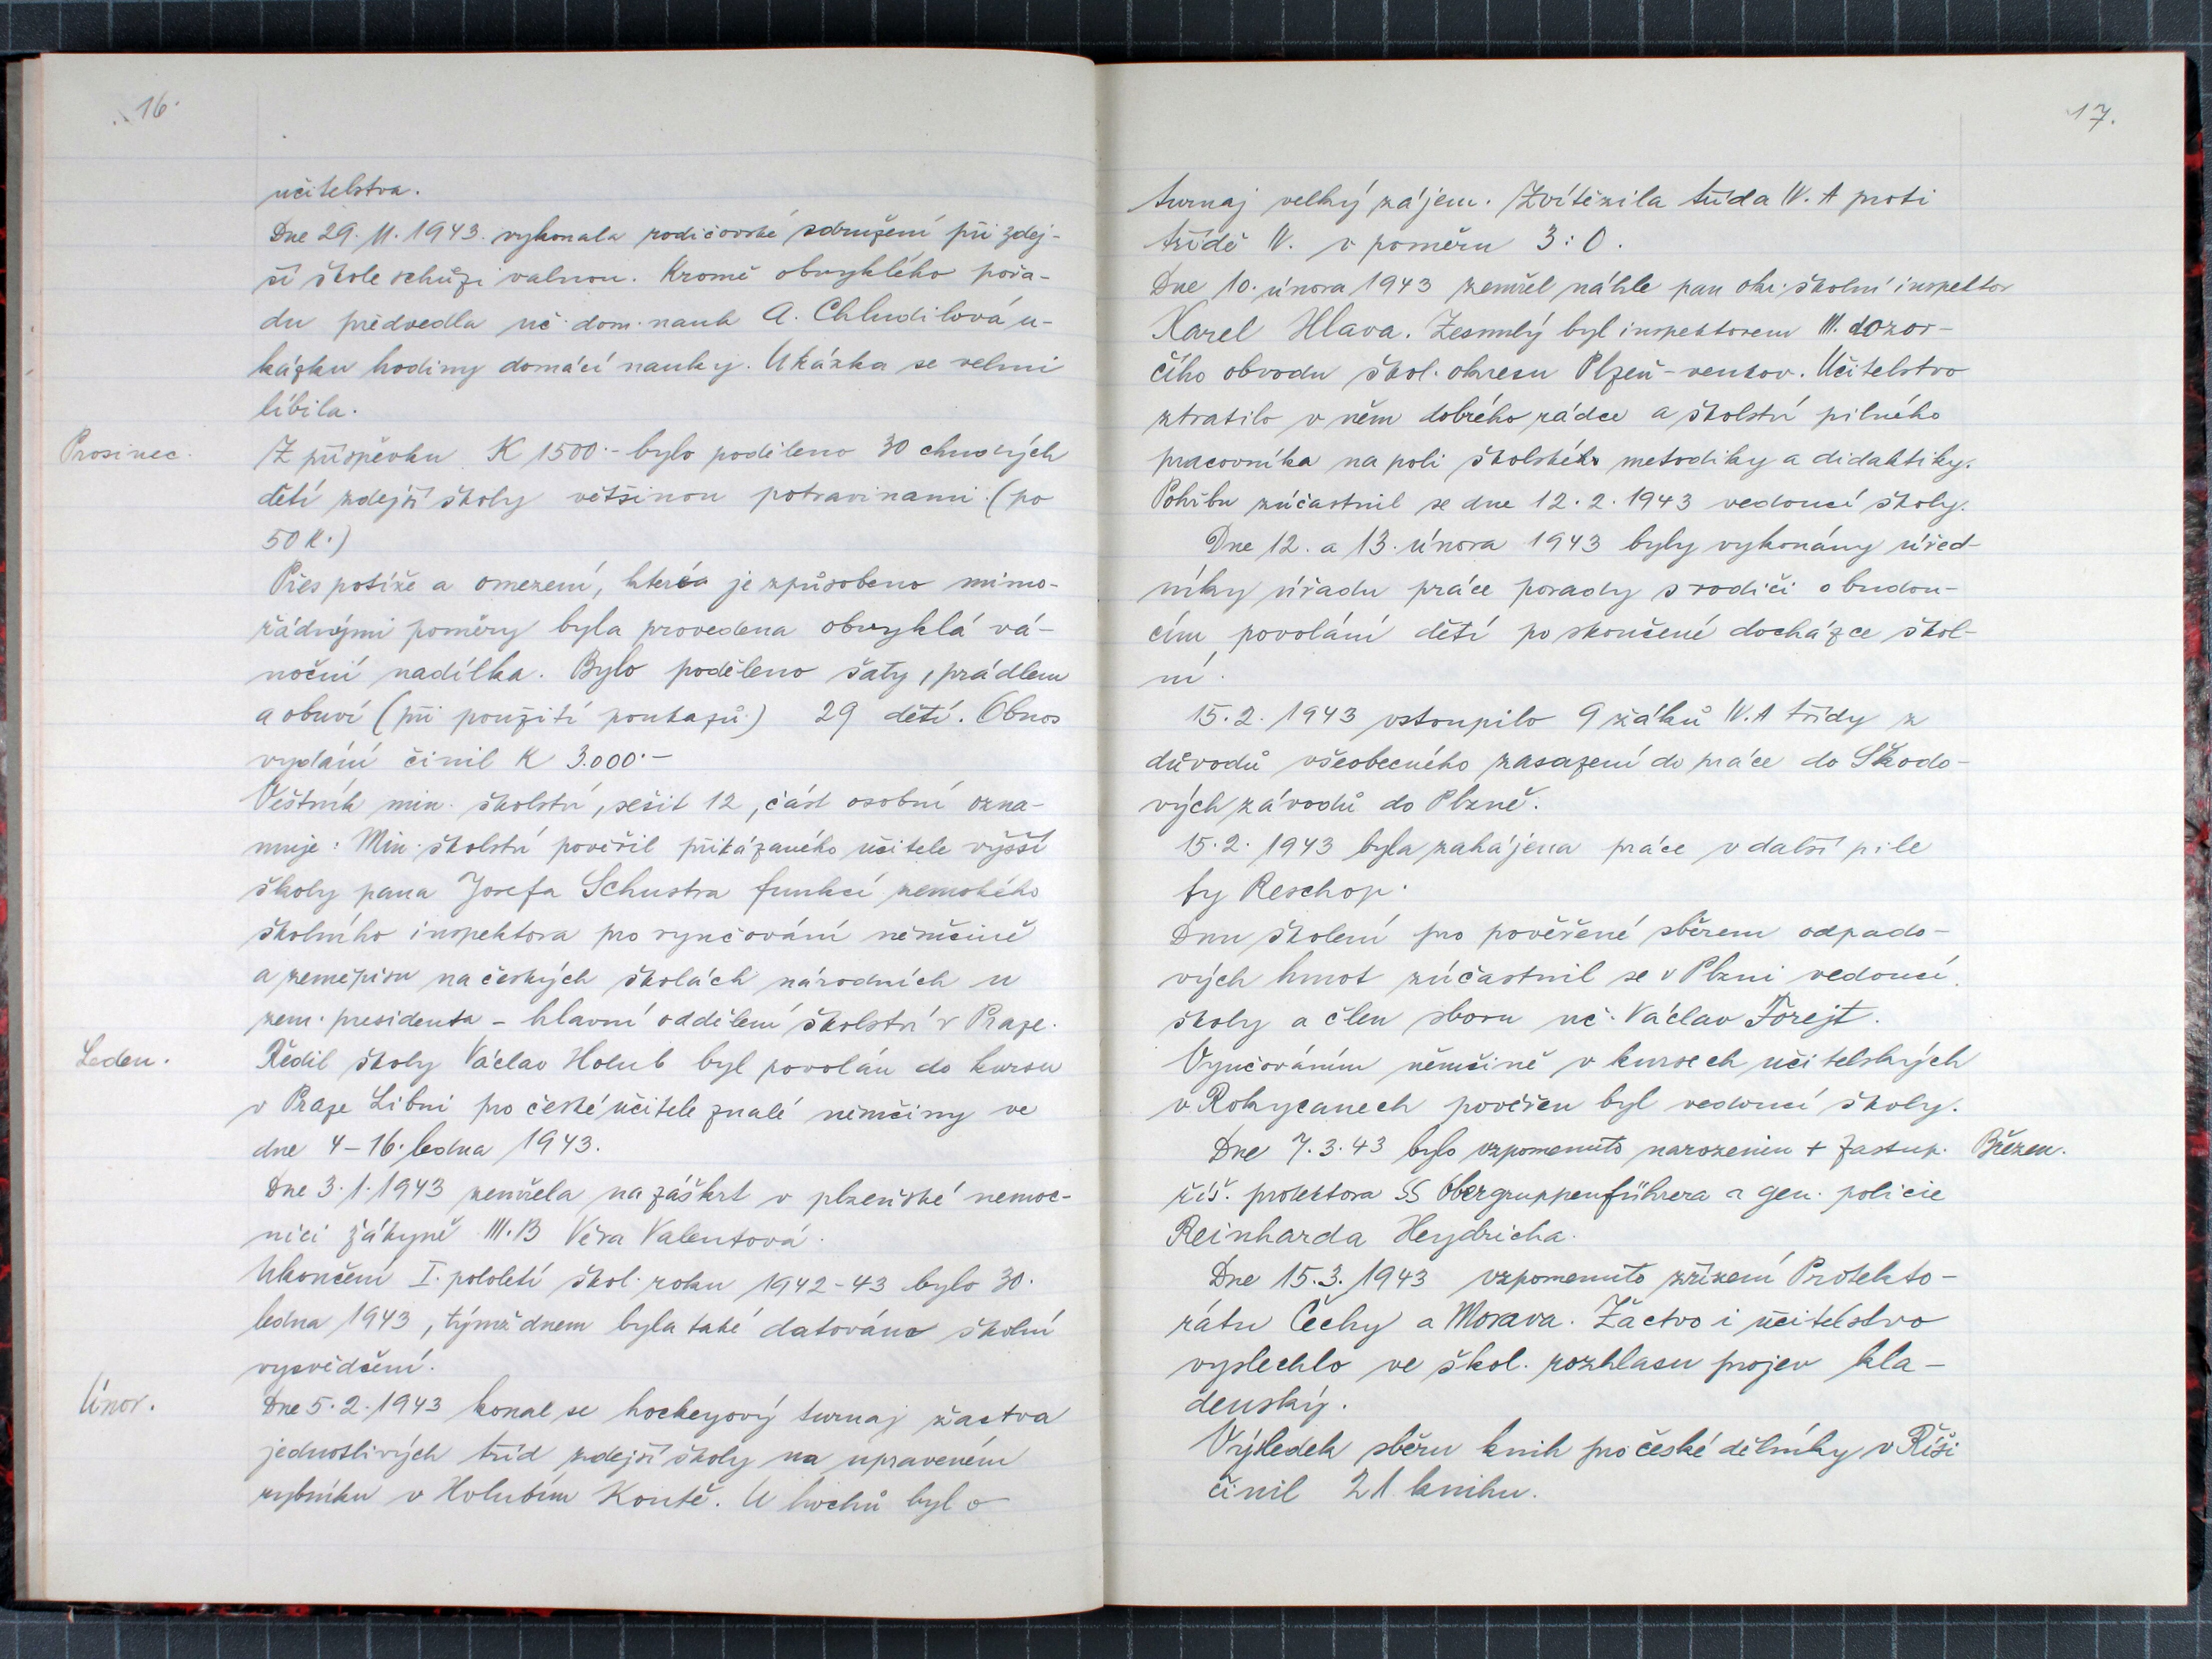 16.
učitelstva.
Dne 29. 11. 1943. vykonala rodičovské sdružení při zdej-
ší škole schůzi valnou. Kromě obvyklého pořa-
du předvedla uč. dom. nauk A. Chludilová u-
kázku hodiny domácí nauky. Ukázka se velmi
líbila.
Prosinec.
Z příspěvku K 1500.- bylo poděleno 30 chudých
dětí zdejší školy většinou potravinami. (po
50 K.)
Přes potíže a omezení, která je způsobeno mimo-
řádnými poměry byla provedena obvyklá vá-
noční nadílka. Bylo poděleno šaty, prádlem
a obuví (při použití poukazů) 29 dětí. Obnos
vydání činil K 3.000.-
Věstník min. školství, sešit 12, část osobní ozna-
muje: Min. školství pověřil přikázaného učitele vyšší
školy pana Josefa Schustra funkcí zemského
školního inspektora pro vyučování němčině
a zeměpisu na českých školách národních u
zem. presidenta - hlavní oddělení školství v Praze.
Leden.
Ředit. školy Václav Holub byl povolán do kursu
v Praze Libni pro české učitele znalé němčiny ve
dne 4-16. ledna 1943.
Dne 3. 1. 1943 zemřela na záškrt v plzeňské nemoc-
nici žákyně III. B Věra Valentová.
Ukončení I. pololetí škol. roku 1942-43 bylo 30.
ledna 1943, týmž dnem byla také datováno školní
vysvědčení.
Únor.
Dne 5. 2. 1943 konal se hockeyový turnaj žactva
jednotlivých tříd zdejší školy na upraveném
rybníku v Holubím Koutě. U hochů byl o
17.
turnaj velký zájem. Zvítězila třída IV. A proti
třídě IV. v poměru 3:0.
Dne 10. února 1943 zemřel náhle pan okr. školní inspektor
Karel Hlava. Zesnulý byl inspektorem III. dozor-
čího obvodu škol. okresu Plzeň-venkov. Učitelstvo
ztratilo v něm dobrého rádce a školství pilného
pracovníka na poli školské metodiky a didaktiky.
Pohřbu zúčastnil se dne 12. 2. 1943 vedoucí školy.
Dne 12. a 13. února 1943 byly vykonány úřed-
níky úřadu práce porady s rodiči o budou-
cím povolání dětí po skončené docházce škol-
ní.
15. 2. 1943 vstoupilo 9 žáků IV. A třídy z
důvodů všeobecného zasazení do práce do Škodo-
vých závodů do Plzně.
15. 2. 1943 byla zahájena práce v další pile
fy Reschop.
Dnu školení pro pověřené sběrem odpado-
vých hmot zúčastnil se v Plzni vedoucí
školy a člen sboru uč. Václav Forejt.
Vyučováním němčině v kursech učitelských
v Rokycanech pověřen byl vedoucí školy.
Březen.
Dne 7. 3. 43 bylo vzpomenuto narozenin + zastup.
říš. protektora SS Obergruppenführera a gen. policie
Reinharda Heydricha.
Dne 15. 3. 1943 vzpomenuto zřízení Protekto-
rátu Čechy a Morava. Žactvo i učitelstvo
vyslechlo ve škol. rozhlasu projev kla-
denský.
Výsledek sběru knih pro české dělníky v Říši
činil 21 knihu.